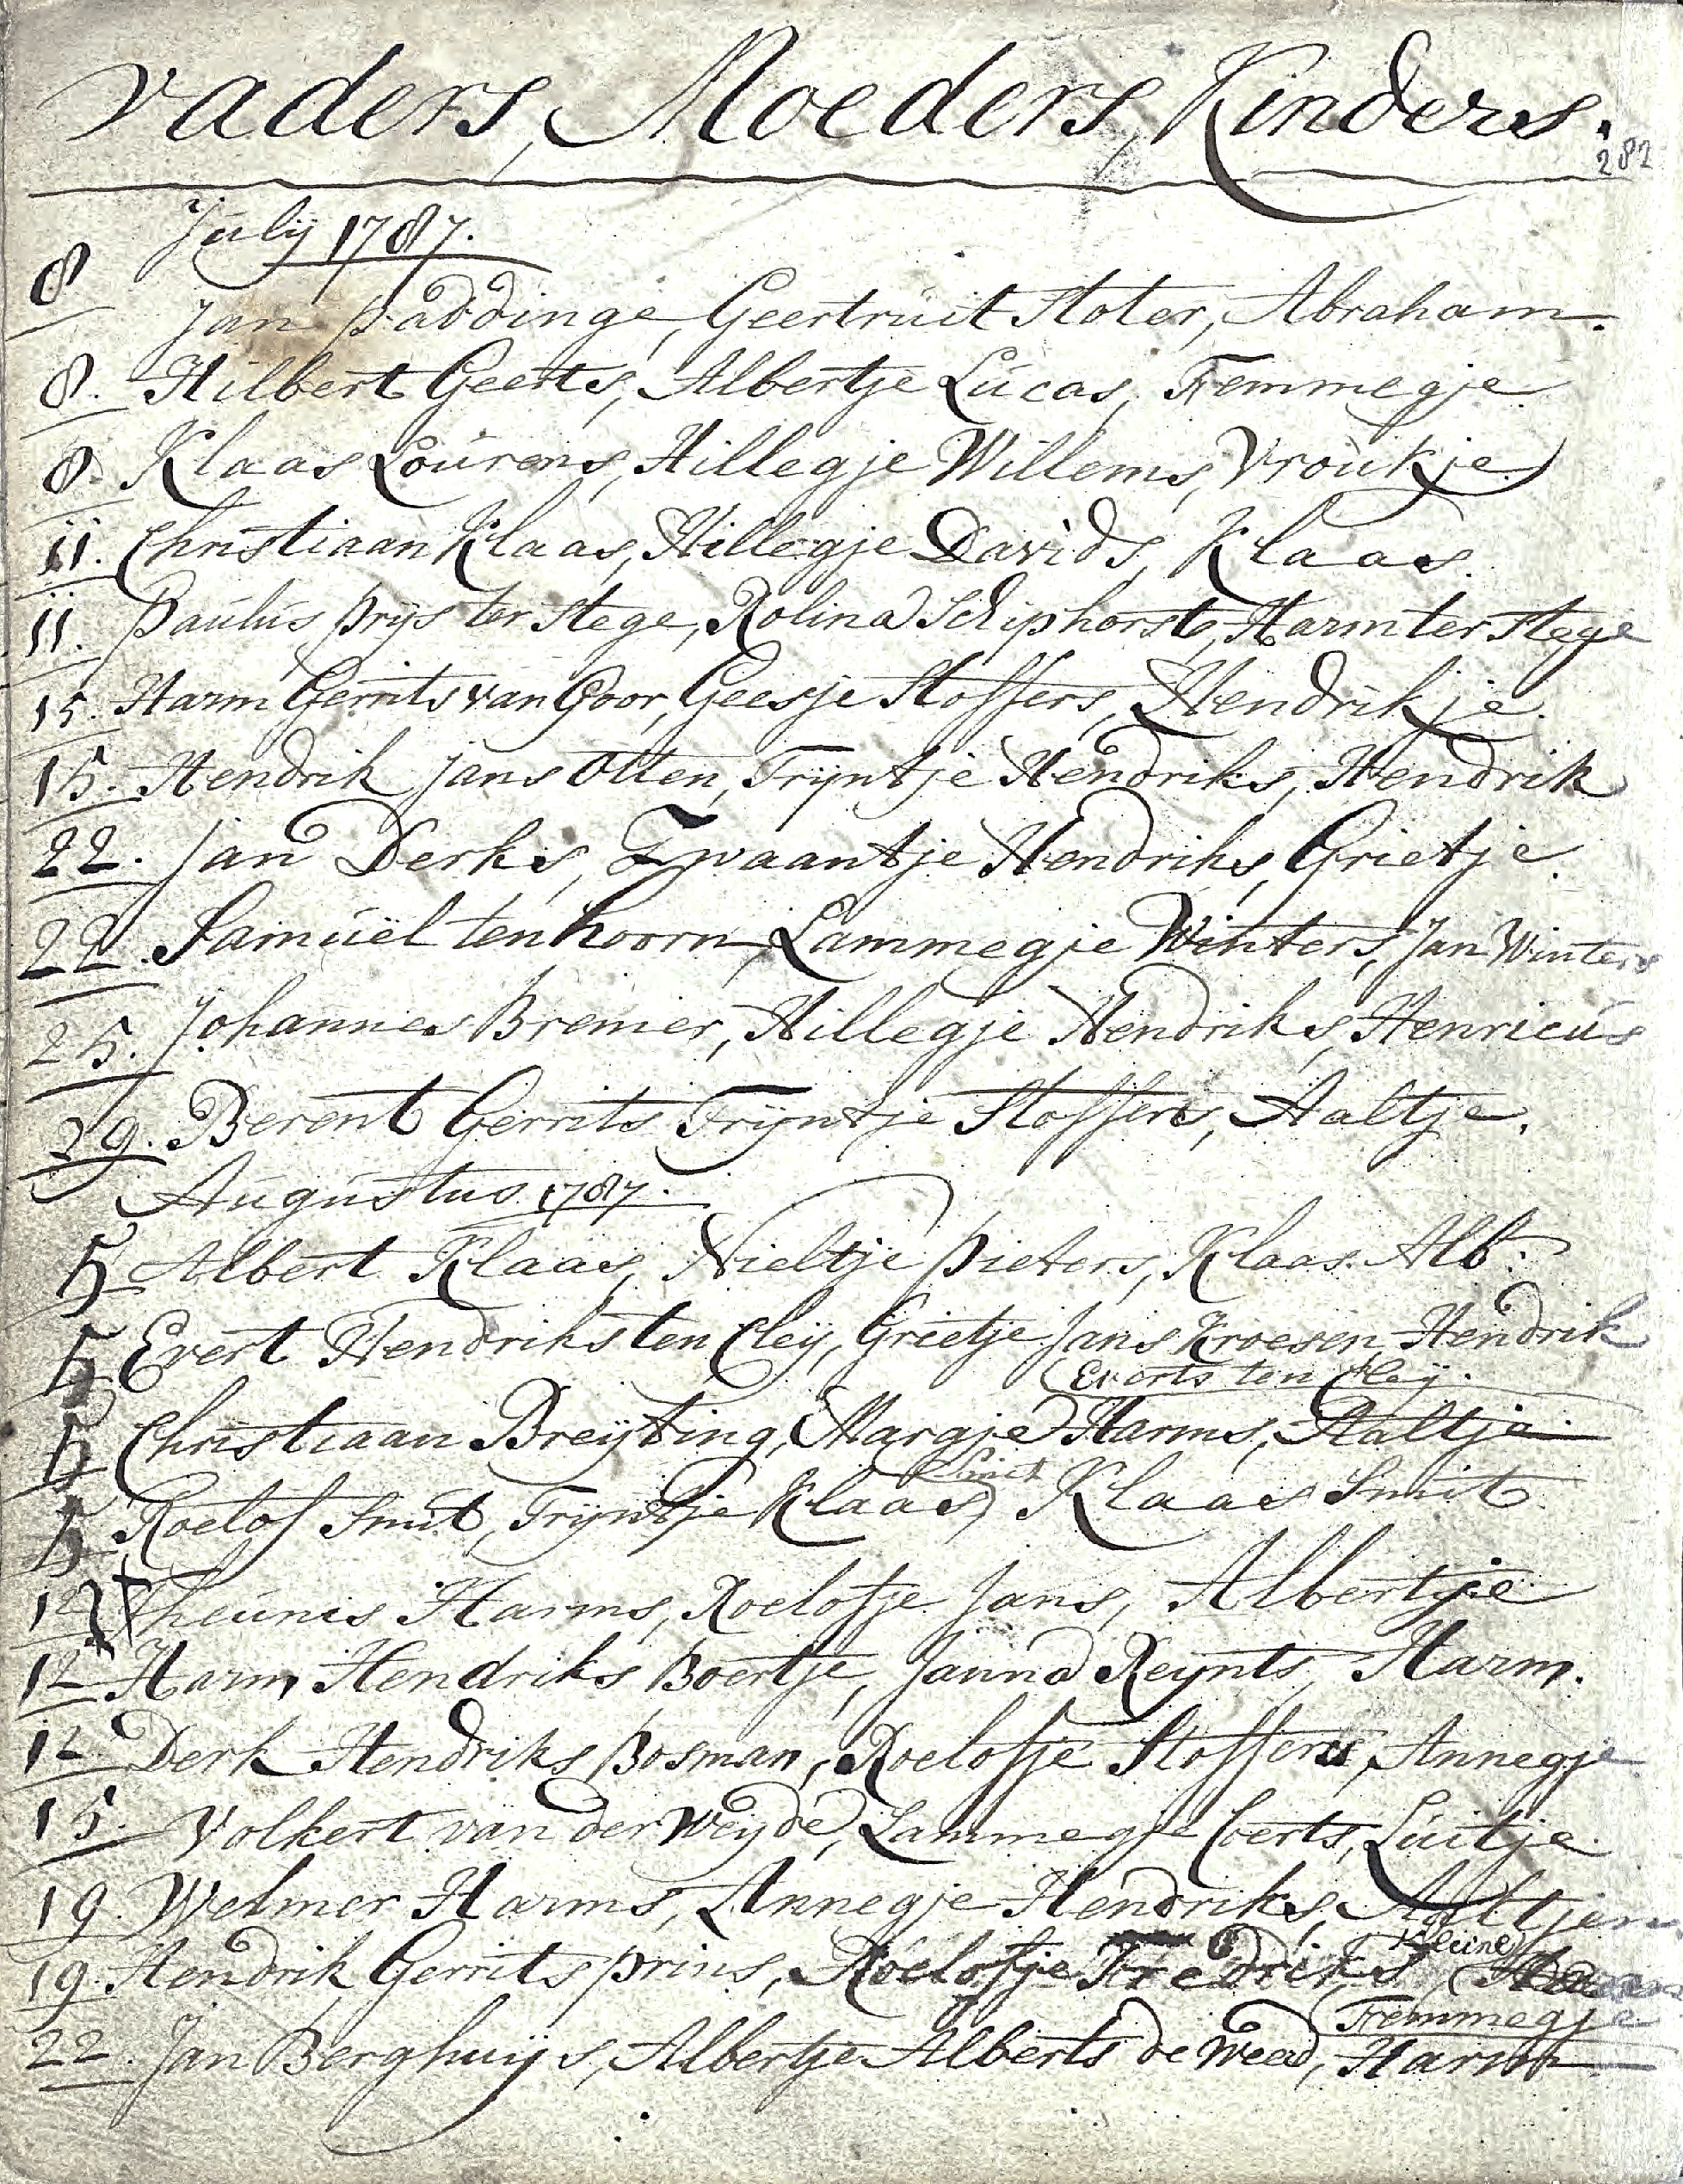 Vaders, Moeders, Kinders.
282
July 1787.
8 Jan Paddinge, Geertruit Stoter, Abraham.
8. Hilbert Geerts, Albertje Lucas, Femmegje
8. Klaas Lourens, Hillegje Willems, Vroukje
11. Christiaan Klaas, Hillegje Davids, Klaas.
11. Paulus Prijs ter Stege, Rolina Schiphorst, Harm ter Stege
15. Harm Gerrits van Goor, Geesje Stoffers, Hendrikje.
15. Hendrik Jans Otten, Trijntje Hendriks, Hendrik
22. Jan Derks, Zwaantje Hendriks, Grietje.
22. Samuël ten hoorn, Lammegje Winters, Jan Winters
25. Johannes Bremer, Hillegje Hendriks, Henricus
29. Berent Gerrits, Trijntje Stoffers, Aaltje.
Augustus 1787.
5 Albert Klaas, Nieltje Pieters, Klaas Alb:
5 Evert Hendriks ten Cleij, Grietje Jans Kroesen, Hendrik
Everts ten Cleij.
5 Christiaan Breijting, Margje Harms, Aaltje
Smit
5 Roelof Smit, Trijntje Klaas, Klaas Smit
12 Theunis Harms, Roelofje Jans, Albertje
12 Harm Hendriks Boertje, Janna Reynts, Harm.
12. Derk Hendriks Bosman, Roelofje Stoffers, Annegje
15. Volkert van der Weijde, Lammegje Coerts, Luitje.
19. Welmer Harms, Annegje Hendriks, Aaltjen
Kleine
19. Hendrik Gerrits Prins, Roelofje Fredriks
Femmegje
22. Jan Berghuijs, Albertje Alberts de Weed, Harm